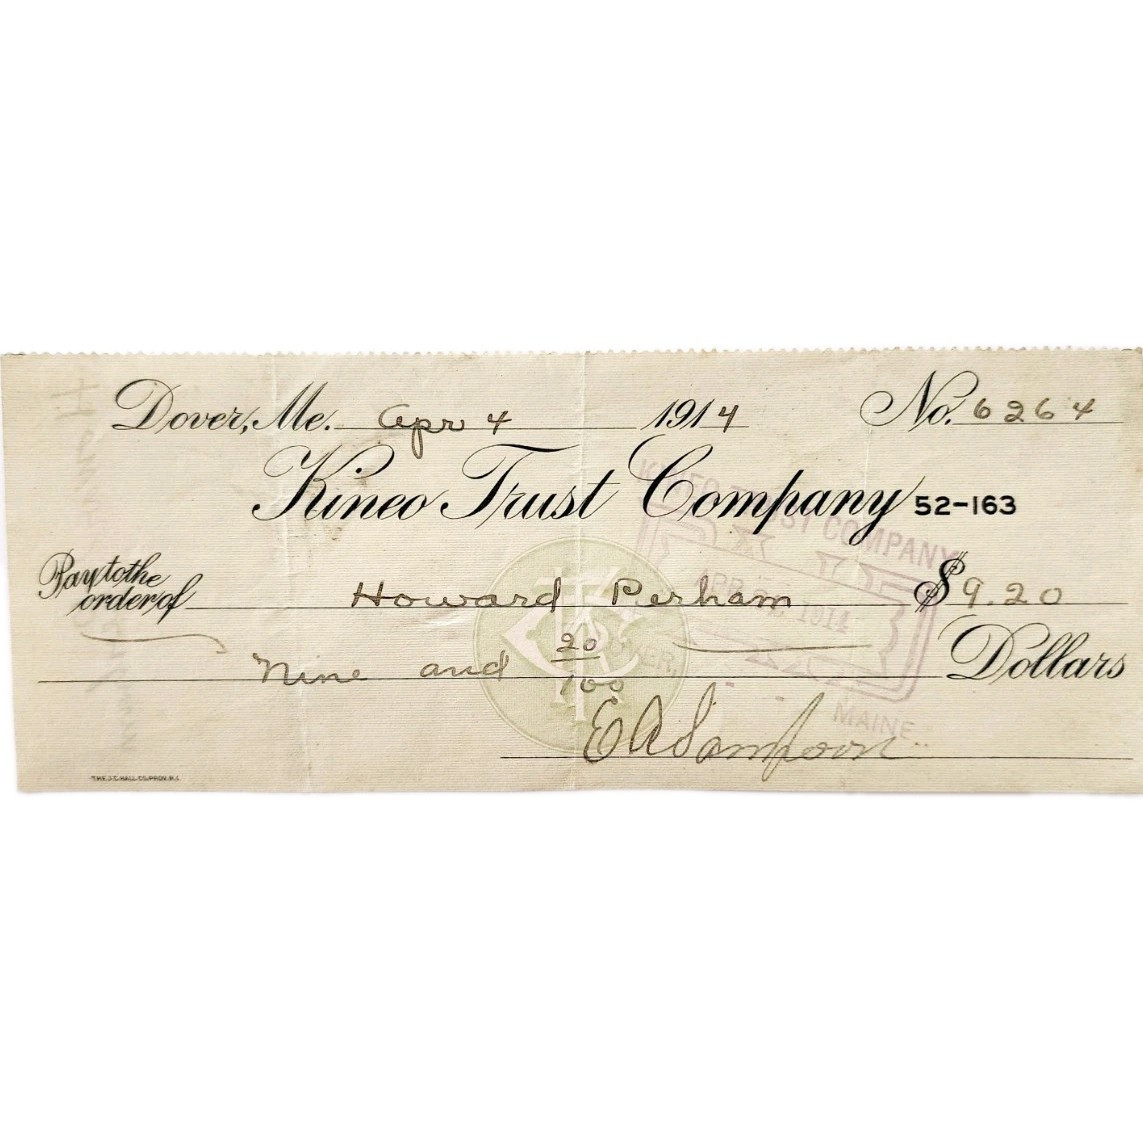 Dover, Me. Apr 4 1914 No. 6264
Kineo Trust Company 52-163
Pay to the order of Howard Perham $9.20
Nine and 20/100 Dollars
E A Sampson
KINEO TRUST COMPANY
PAID
APR 1914
DOVER, MAINE
THE J.C. HALL CO. PROV. R.I.